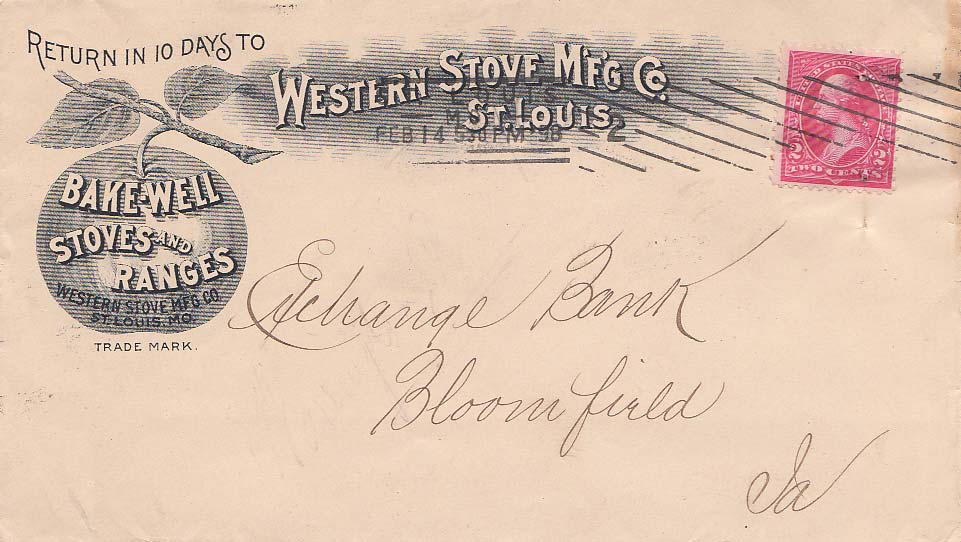 RETURN IN 10 DAYS TO
WESTERN STOVE M'F'G CO.
ST. LOUIS
FEB 14 5 30 PM 98
2
BAKE-WELL
STOVES AND
RANGES
WESTERN STOVE MFG. CO.
ST. LOUIS, MO.
TRADE MARK.
2 2
TWO CENTS
Exchange Bank
Bloomfield
Ia